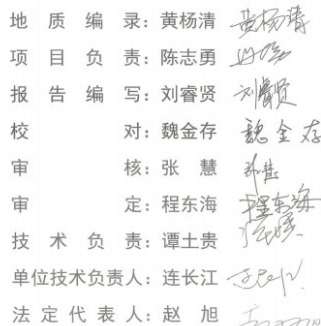 地质编录：黄杨清 黄杨清
项目负责：陈志勇
报告编写：刘睿贤 刘睿贤
校对：魏金存 魏金存
审核：张慧 张慧
审定：程东海 程东海
技术负责：谭土贵
单位技术负责人：连长江
法定代表人：赵旭